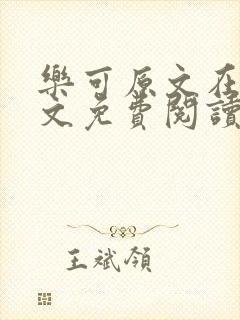 樂可原文在
文免費閱讀
王斌領